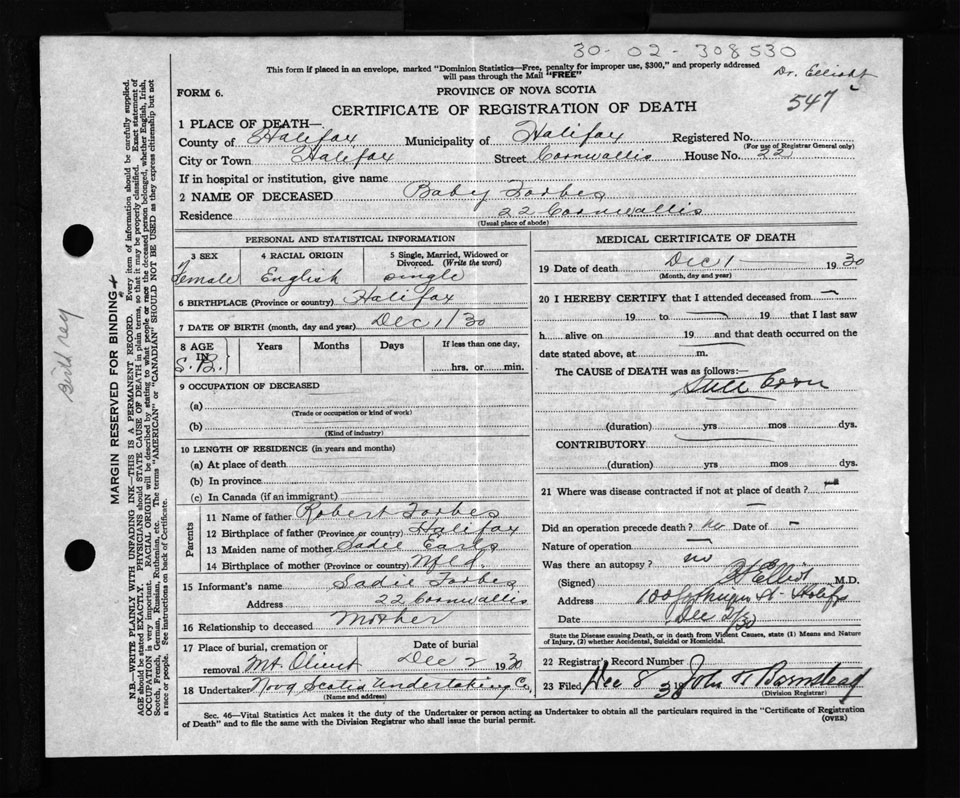 30-02-308530
This form if placed in an envelope, marked "Dominion Statistics—Free, penalty for improper use, $300," and properly addressed
will pass through the Mail "FREE"
Dr. Elliott
547
FORM 6.
PROVINCE OF NOVA SCOTIA
CERTIFICATE OF REGISTRATION OF DEATH
1 PLACE OF DEATH—
County of Halifax Municipality of Halifax Registered No.
(For use of Registrar General only)
City or Town Halifax Street Cornwallis House No. 22
If in hospital or institution, give name
2 NAME OF DECEASED Baby Forbes
Residence 22 Cornwallis
(Usual place of abode)
PERSONAL AND STATISTICAL INFORMATION
3 SEX 4 RACIAL ORIGIN 5 Single, Married, Widowed or
Divorced. (Write the word)
Female English single
6 BIRTHPLACE (Province or country) Halifax
7 DATE OF BIRTH (month, day and year) Dec 1/30
8 AGE IN Years Months Days If less than one day,
S.B. hrs. or min.
9 OCCUPATION OF DECEASED
(a)
(Trade or occupation or kind of work)
(b)
(Kind of industry)
10 LENGTH OF RESIDENCE (in years and months)
(a) At place of death
(b) In province
(c) In Canada (if an immigrant)
Parents
11 Name of father Robert Forbes
12 Birthplace of father (Province or country) Halifax
13 Maiden name of mother Sadie Earls
14 Birthplace of mother (Province or country) Nfld.
15 Informant's name Sadie Forbes
Address 22 Cornwallis
16 Relationship to deceased Mother
17 Place of burial, cremation or Date of burial
removal Mt. Olivet Dec 2 1930
18 Undertaker Nova Scotia Undertaking Co.
(Name and address)
MEDICAL CERTIFICATE OF DEATH
19 Date of death Dec 1 1930
(Month, day and year)
20 I HEREBY CERTIFY that I attended deceased from
19 to 19 that I last saw
h alive on 19 and that death occurred on the
date stated above, at m.
The CAUSE of DEATH was as follows:—
Still Born
(duration) yrs mos dys.
CONTRIBUTORY
(duration) yrs mos dys.
21 Where was disease contracted if not at place of death?
Did an operation precede death? no Date of
Nature of operation
Was there an autopsy? no
(Signed) Elliot M.D.
Address 100 St- Halifax
Date Dec 2/30
State the Disease causing Death, or in death from Violent Causes, state (1) Means and Nature
of Injury, (2) whether Accidental, Suicidal or Homicidal.
22 Registrar's Record Number
23 Filed Dec 8 1930 John T. Barnstead
(Division Registrar)
Sec. 46—Vital Statistics Act makes it the duty of the Undertaker or person acting as Undertaker to obtain all the particulars required in the "Certificate of Registration
of Death" and to file the same with the Division Registrar who shall issue the burial permit.
(OVER)
Birth reg
MARGIN RESERVED FOR BINDING
N.B.—WRITE PLAINLY WITH UNFADING INK—THIS IS A PERMANENT RECORD. Every item of information should be carefully supplied.
AGE should be stated EXACTLY. PHYSICIANS should STATE CAUSE OF DEATH in plain terms, so that it may be properly classified. Exact statement of
OCCUPATION is very important. RACIAL ORIGIN will be described by stating to what people or race the deceased person belonged, whether English, Irish,
Scotch, French, German, Russian, Ruthenian, etc. The terms "AMERICAN" or "CANADIAN" SHOULD NOT BE USED as they express citizenship but not
a race or people. See instructions on back of Certificate.